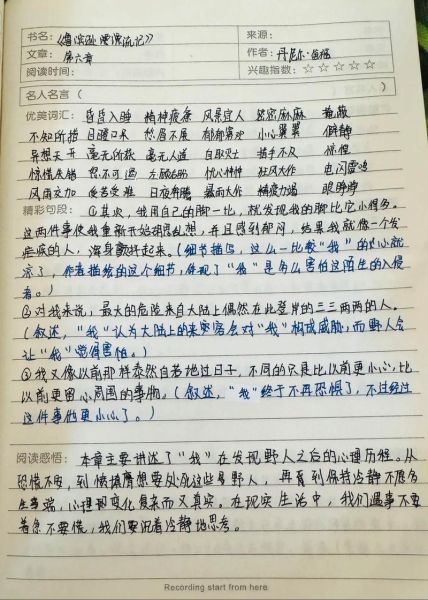 书名：《鲁滨逊漂流记》 来源：
文章：第六章 作者：丹尼尔·笛福
阅读时间： 兴趣指数：☆☆☆☆☆
名人名言（ ）
优美词汇：昏昏入睡 精神疲惫 风景宜人 密密麻麻 掩蔽
不知所措 目瞪口呆 愁眉不展 郁郁寡欢 小心翼翼 僻静
异想天开 毫无所获 毫无人道 自取灭亡 措手不及 惊惶
惊慌失措 怒不可遏 左顾右盼 忧心忡忡 狂风大作 电闪雷鸣
风雨交加 日夜奔腾 暴雨大作 精疲力竭
精彩句段：①其次，我用自己的脚一比，就发现我的脚比它小得多。
这两件事使我重新开始胡思乱想，并且感到郁闷，结果我就像一个发
疟疾的人，浑身颤抖起来。（细节描写，这么一比较“我”的心就
凉了，作者描绘的这个细节，体现了“我”是多么害怕这陌生的入侵
者。）
②对我来说，最大的危险来自大陆上偶然在此登岸的三三两两的人。
（叙述，“我”认为大陆上的来客会对“我”构成威胁，而野人会
让“我”觉得害怕。）
③我又像以前那样泰然自若地过日子，不同的只是比以前更小心，比
以前更留心周围的事物。（叙述，“我”终于不再恐惧了，不过经过
这件事他更小心了。）
阅读感悟：本章主要讲述了“我”在发现野人之后的心理历程。从
恐慌不安，到愤慨想要处死这些野人，再到保持冷静不愿多
生事端，心理变化复杂而又真实。在现实生活中，我们遇事不要
着急不要慌，我们要沉着冷静地思考。
Recording start from here